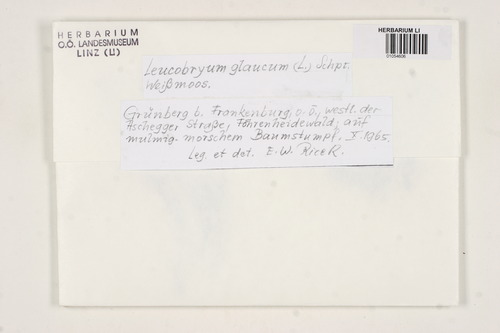 HERBARIUM
O.Ö. LANDESMUSEUM
LINZ (LI)
HERBARIUM LI
01054606
Leucobryum glaucum (L.) Schpr.
Weißmoos.
Grünberg b. Frankenburg, o. ö., westl. der
Aschegger Straße, Föhrenheidewald, auf
mulmig-morschem Baumstumpf. X.1965.
Leg. et det. E. W. Ricek.